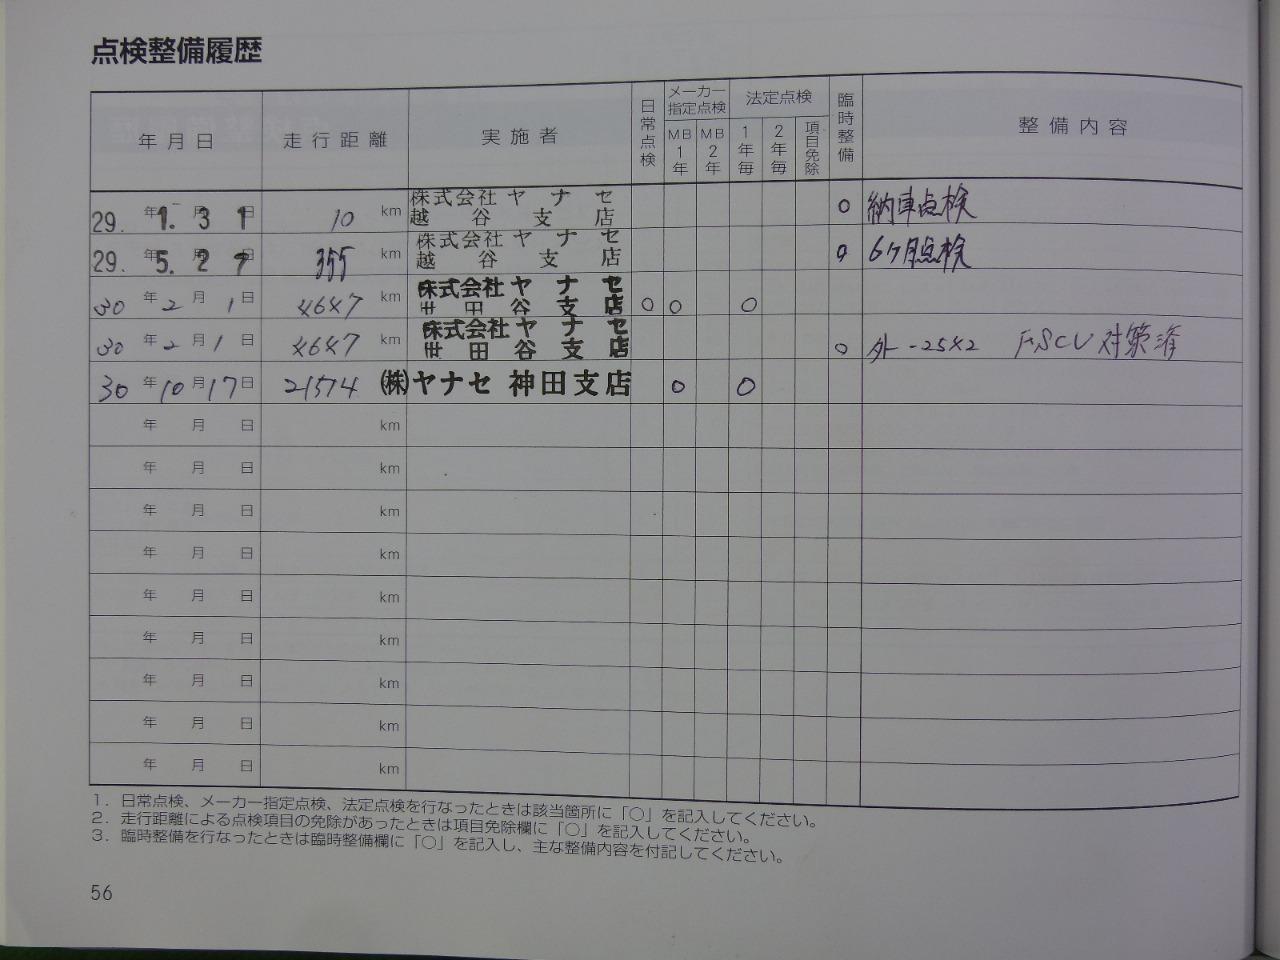 点検整備履歴
年月日 走行距離 実施者 日常点検 メーカー指定点検 MB1年 MB2年 法定点検 1年毎 2年毎 項目免除 臨時整備 整備内容
29. 年 1. 月 31 日 10 km 株式会社ヤナセ 越谷支店 ○ 納車点検
29. 年 5. 月 27 日 355 km 株式会社ヤナセ 越谷支店 ○ 6ヶ月点検
30 年 2 月 1 日 4647 km 株式会社ヤナセ 世田谷支店 ○ ○ ○
30 年 2 月 1 日 4647 km 株式会社ヤナセ 世田谷支店 ○ 外-25×2 FSCU対策済
30 年 10 月 17 日 21574 ㈱ヤナセ 神田支店 ○ ○
年 月 日 km
年 月 日 km
年 月 日 km
年 月 日 km
年 月 日 km
年 月 日 km
年 月 日 km
年 月 日 km
年 月 日 km
1. 日常点検、メーカー指定点検、法定点検を行なったときは該当箇所に「○」を記入してください。
2. 走行距離による点検項目の免除があったときは項目免除欄に「○」を記入してください。
3. 臨時整備を行なったときは臨時整備欄に「○」を記入し、主な整備内容を付記してください。
56